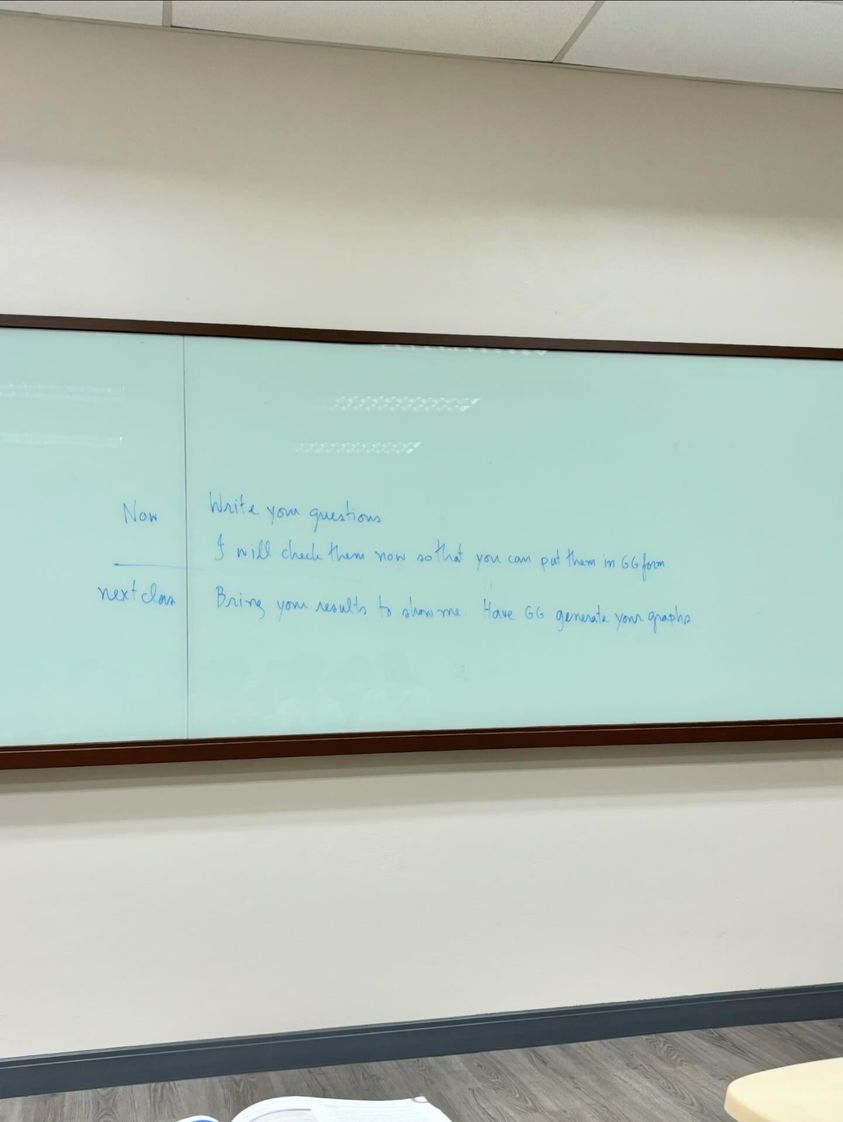 Now Write your questions
I will check them now so that you can put them in GG form.
next class Bring your results to show me. Have GG generate your graphs